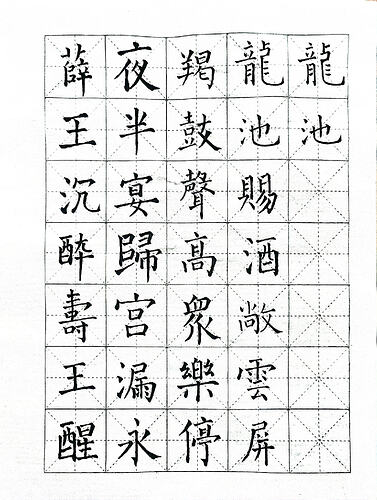 龍池
龍池賜酒敞雲屏
羯鼓聲高眾樂停
夜半宴歸宮漏永
薛王沉醉壽王醒